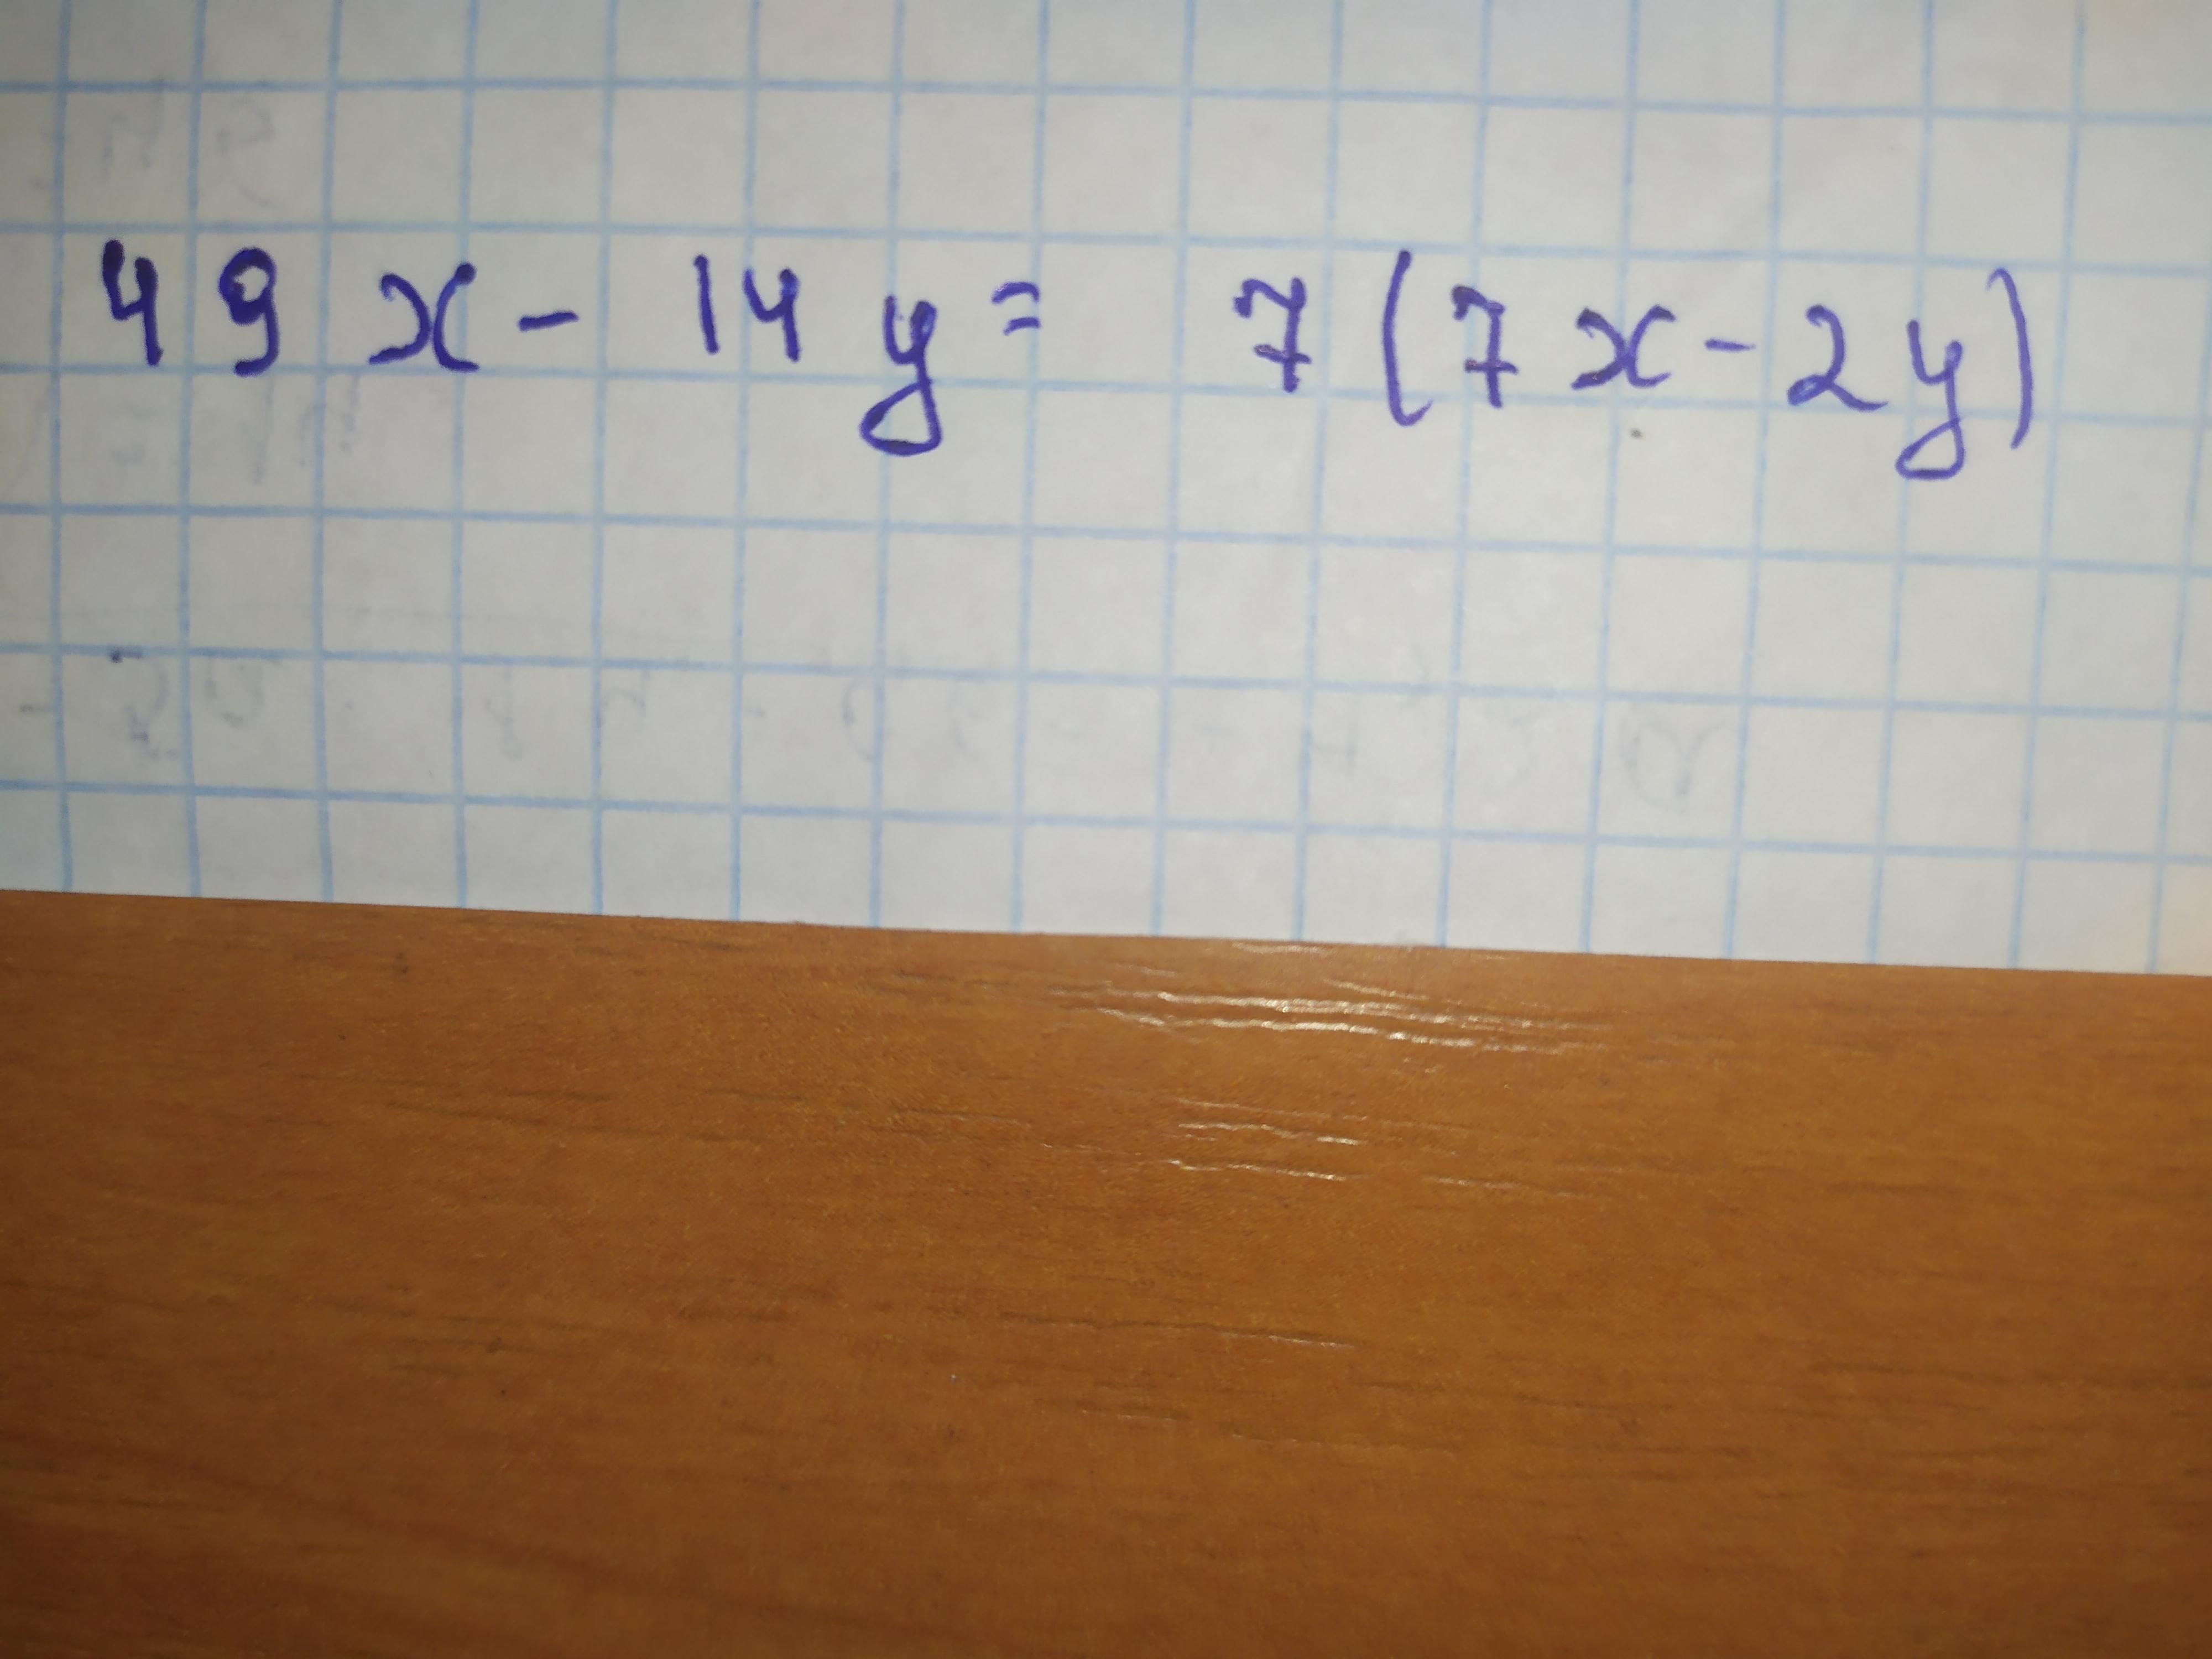 49x - 14y = 7(7x - 2y)